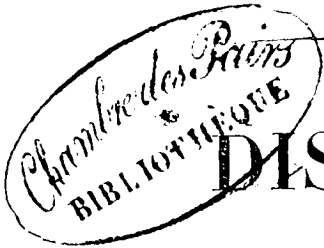 Chambre des Pairs
&
BIBLIOTHÈQUE
DIS